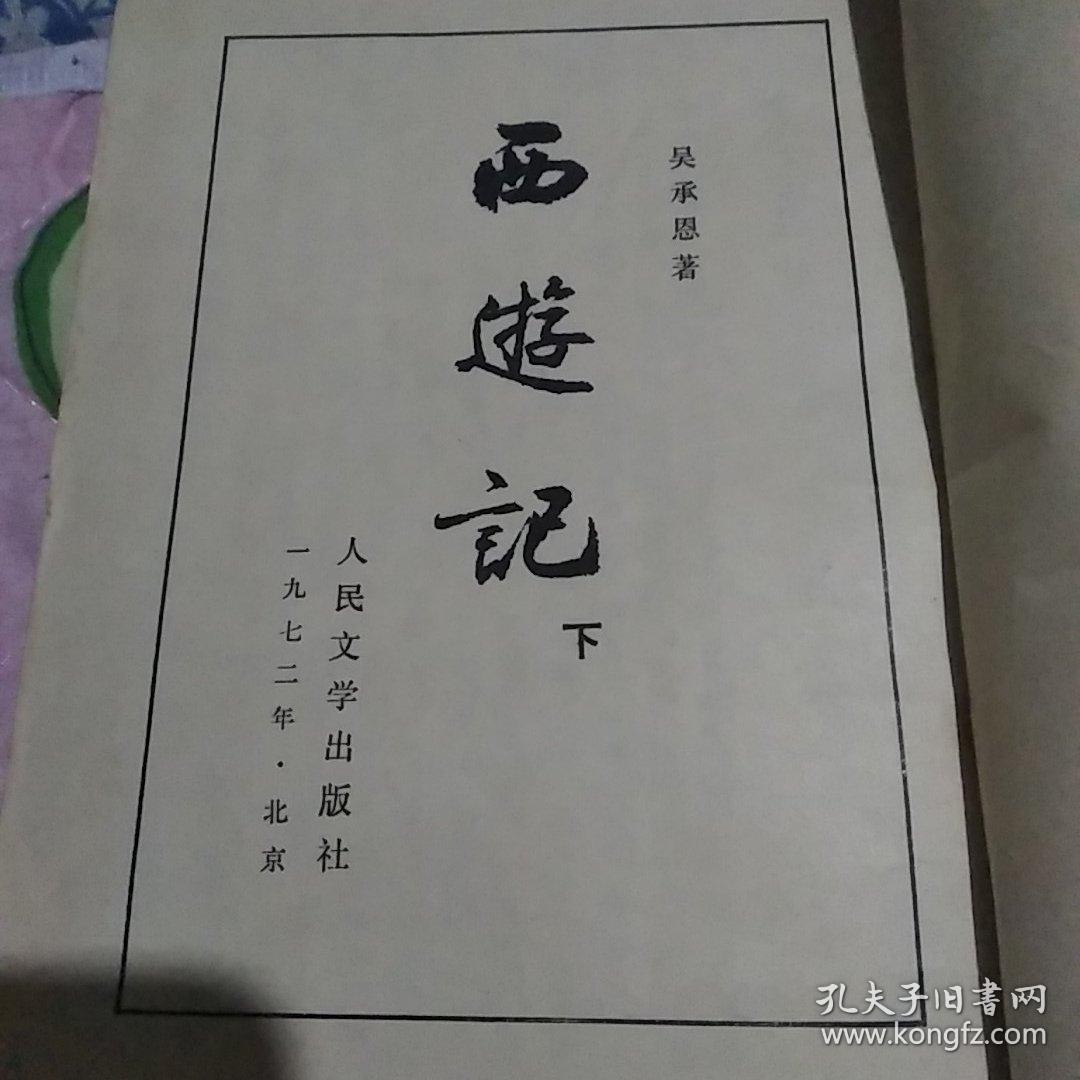 吴承恩著
西遊記
下
人民文学出版社
一九七二年·北京
孔夫子旧書网
www.kongfz.com